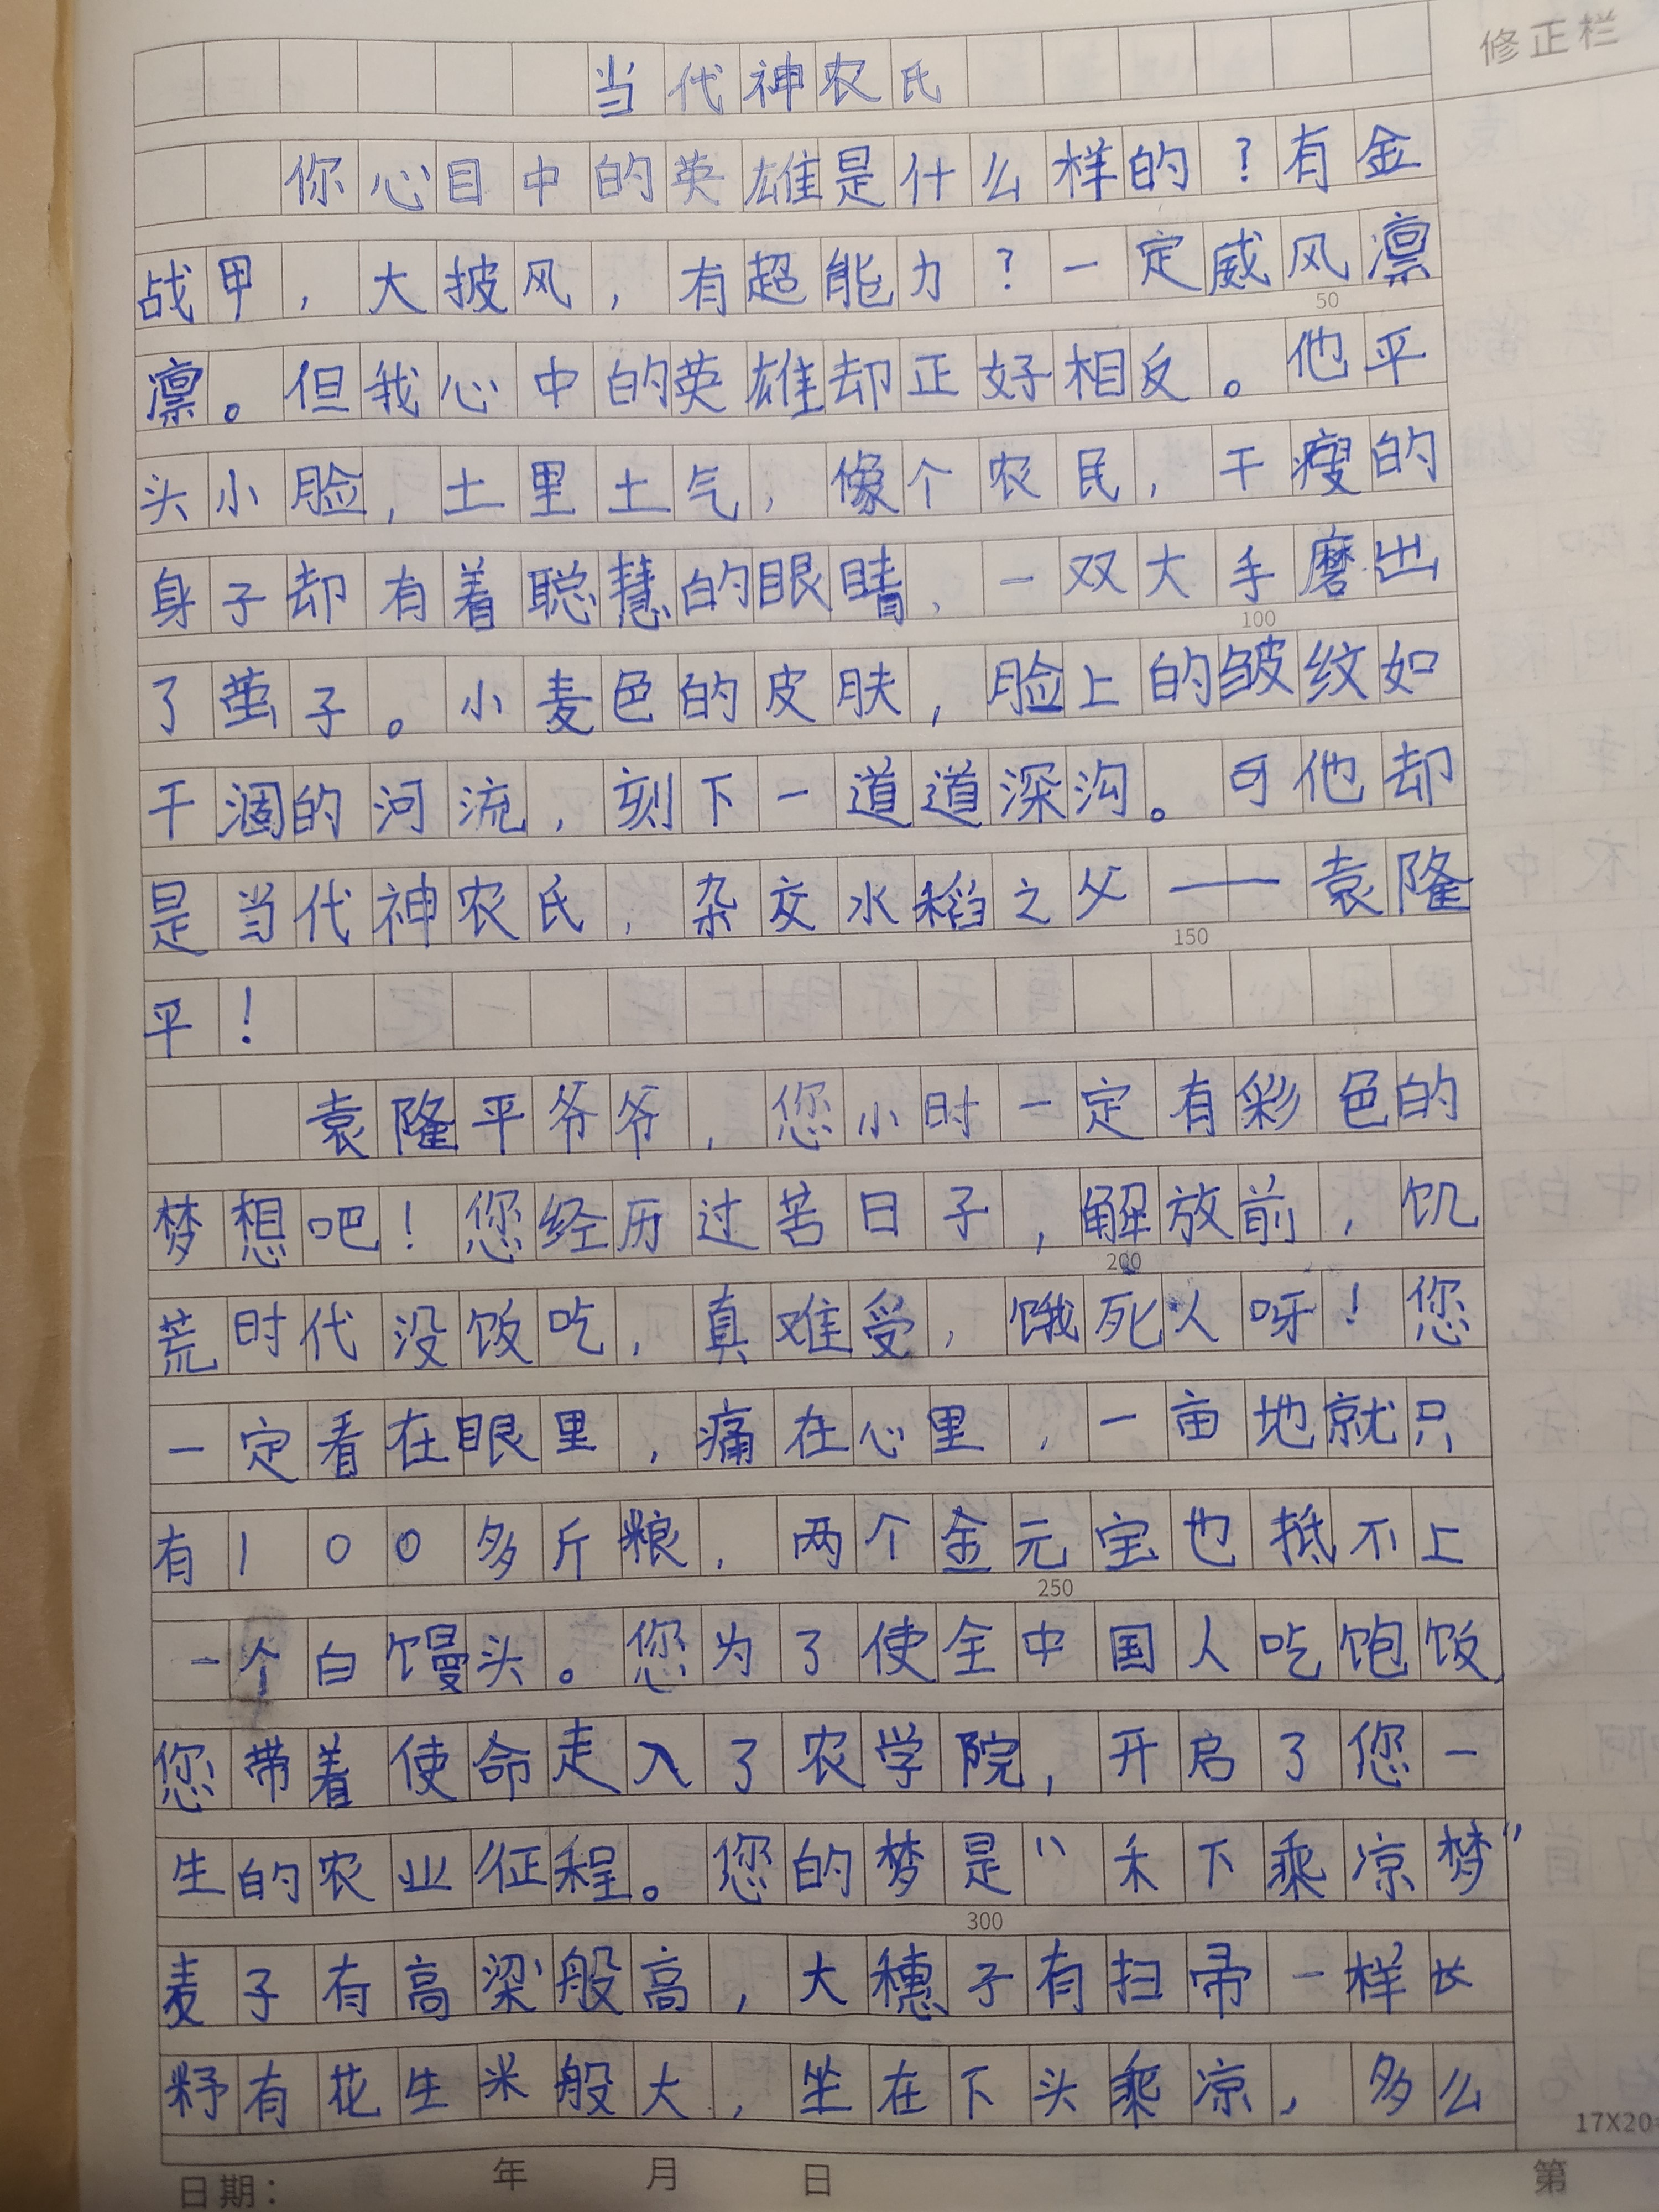 修正栏
当代神农氏
你心目中的英雄是什么样的？有金
战甲，大披风，有超能力？一定威风凛
50
凛。但我心中的英雄却正好相反。他平
头小脸，土里土气，像个农民，干瘦的
身子却有着聪慧的眼睛，一双大手磨出
100
了茧子。小麦色的皮肤，脸上的皱纹如
干涸的河流，刻下一道道深沟。可他却
是当代神农氏，杂交水稻之父——袁隆
150
平！
袁隆平爷爷，您小时一定有彩色的
梦想吧！您经历过苦日子，解放前，饥
200
荒时代没饭吃，真难受，饿死人呀！您
一定看在眼里，痛在心里，一亩地就只
有100多斤粮，两个金元宝也抵不上
250
一个白馒头。您为了使全中国人吃饱饭，
您带着使命走入了农学院，开启了您一
生的农业征程。您的梦是“禾下乘凉梦”
300
麦子有高梁般高，大穗子有扫帚一样长
籽有花生米般大，坐在下头乘凉，多么
17X20=
日期： 年 月 日 第